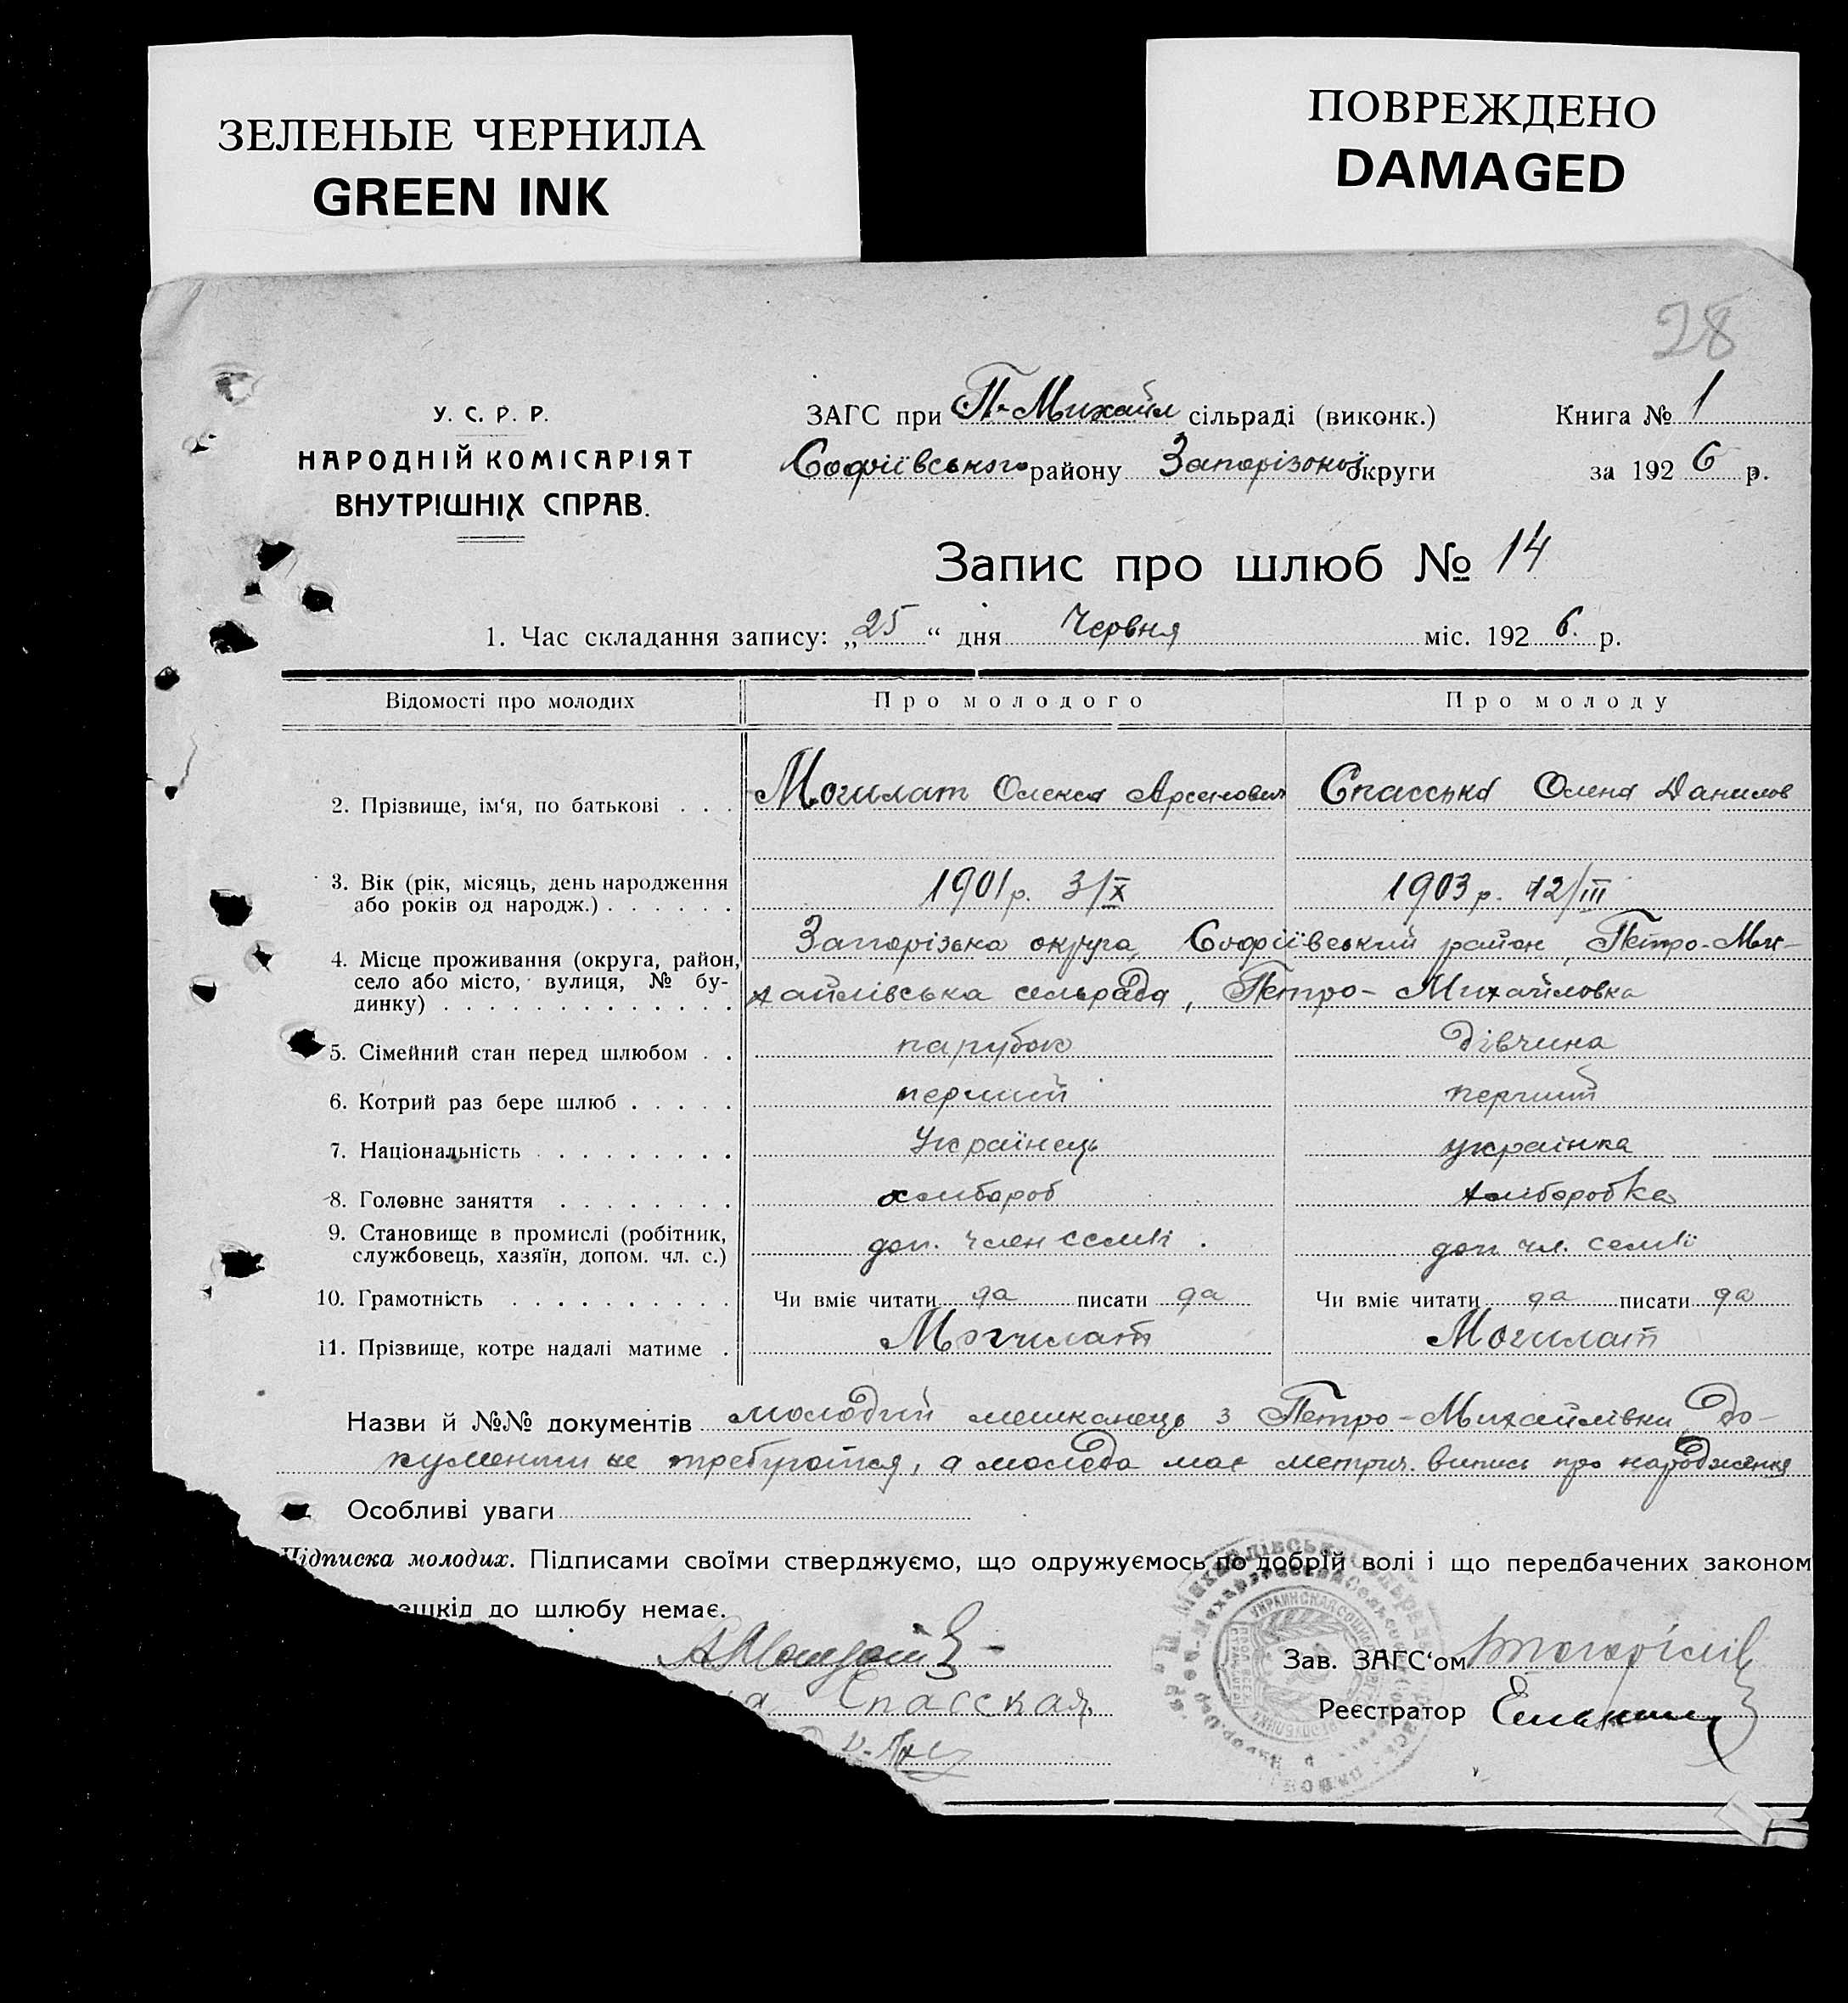 ЗЕЛЕНЫЕ ЧЕРНИЛА
GREEN INK
ПОВРЕЖДЕНО
DAMAGED
28
У. С. Р. Р.
НАРОДНІЙ КОМІСАРІЯТ
ВНУТРІШНІХ СПРАВ.
ЗАГС при П-Михайл сільраді (виконк.) Книга № 1
Софіївського району Запорізької округи за 1926 р.
Запис про шлюб № 14
1. Час складання запису: „25“ дня Червня міс. 1926. р.
Відомості про молодих Про молодого Про молоду
2. Прізвище, ім‘я, по батькові . . . Могилат Олекса Арсенович Спасська Олена Данилов
3. Вік (рік, місяць, день народження
або років од народж.) . . . . . . 1901 р. 3/X 1903 р. 12/III
4. Місце проживання (округа, район, Запорізька округа, Софіївський район, Петро-Ми-
село або місто, вулиця, № бу-
динку) . . . . . . . . . . . . . хайлівська сельрада, Петро-Михайловка
5. Сімейний стан перед шлюбом . . парубок дівчина
6. Котрий раз бере шлюб . . . . . перший перший
7. Національність . . . . . . . . . Українець українка
8. Головне заняття . . . . . . . . хлібороб хліборобка
9. Становище в промислі (робітник,
службовець, хазяїн, допом. чл. с.) доп. член семйі . доп чл. семйї
10. Грамотність . . . . . . . . . . Чи вміє читати да писати да Чи вміє читати да писати да
11. Прізвище, котре надалі матиме . Могилат Могилат
Назви й №№ документів молодий мешканець з Петро-Михайлівки, до-
кументи не требуются, а молода має метрич. випись про народження
Особливі уваги
Підписка молодих. Підписами своїми стверджуємо, що одружуємось по добрій волі і що передбачених законом
решкід до шлюбу немає.
Зав. ЗАГС‘ом
Спасская
Реєстратор